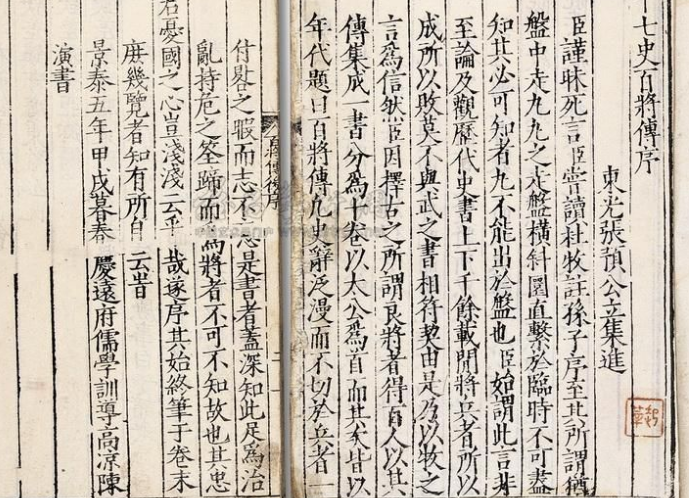 十七史百將傳序
東光張預公立集進
臣謹昧死言臣嘗讀杜牧註孫子序至其所謂猶
盤中走丸丸之走盤橫斜圓直繫於臨時不可盡
知其必可知者丸不能出於盤也臣始謂此言非
至論及觀歷代史書上下千餘載間將兵者所以
成所以敗莫不與武之書相符契由是乃以牧之
言爲信然臣因擇古之所謂良將者得百人以其
傳集成一書分爲十卷以太公爲首而其失皆以
年代題曰百將傳凡史辭泛漫而不切於兵者一
百將傳後序
付畧之暇而志不忘是書者蓋深知此足爲治
亂持危之筌蹄而爲將者不可不知故也其忠
君憂國之心豈淺淺云乎哉遂序其始終筆于卷末
庶幾覽者知有所自云旹
景泰五年甲戌暮春慶遠府儒學訓導高凉陳
演書